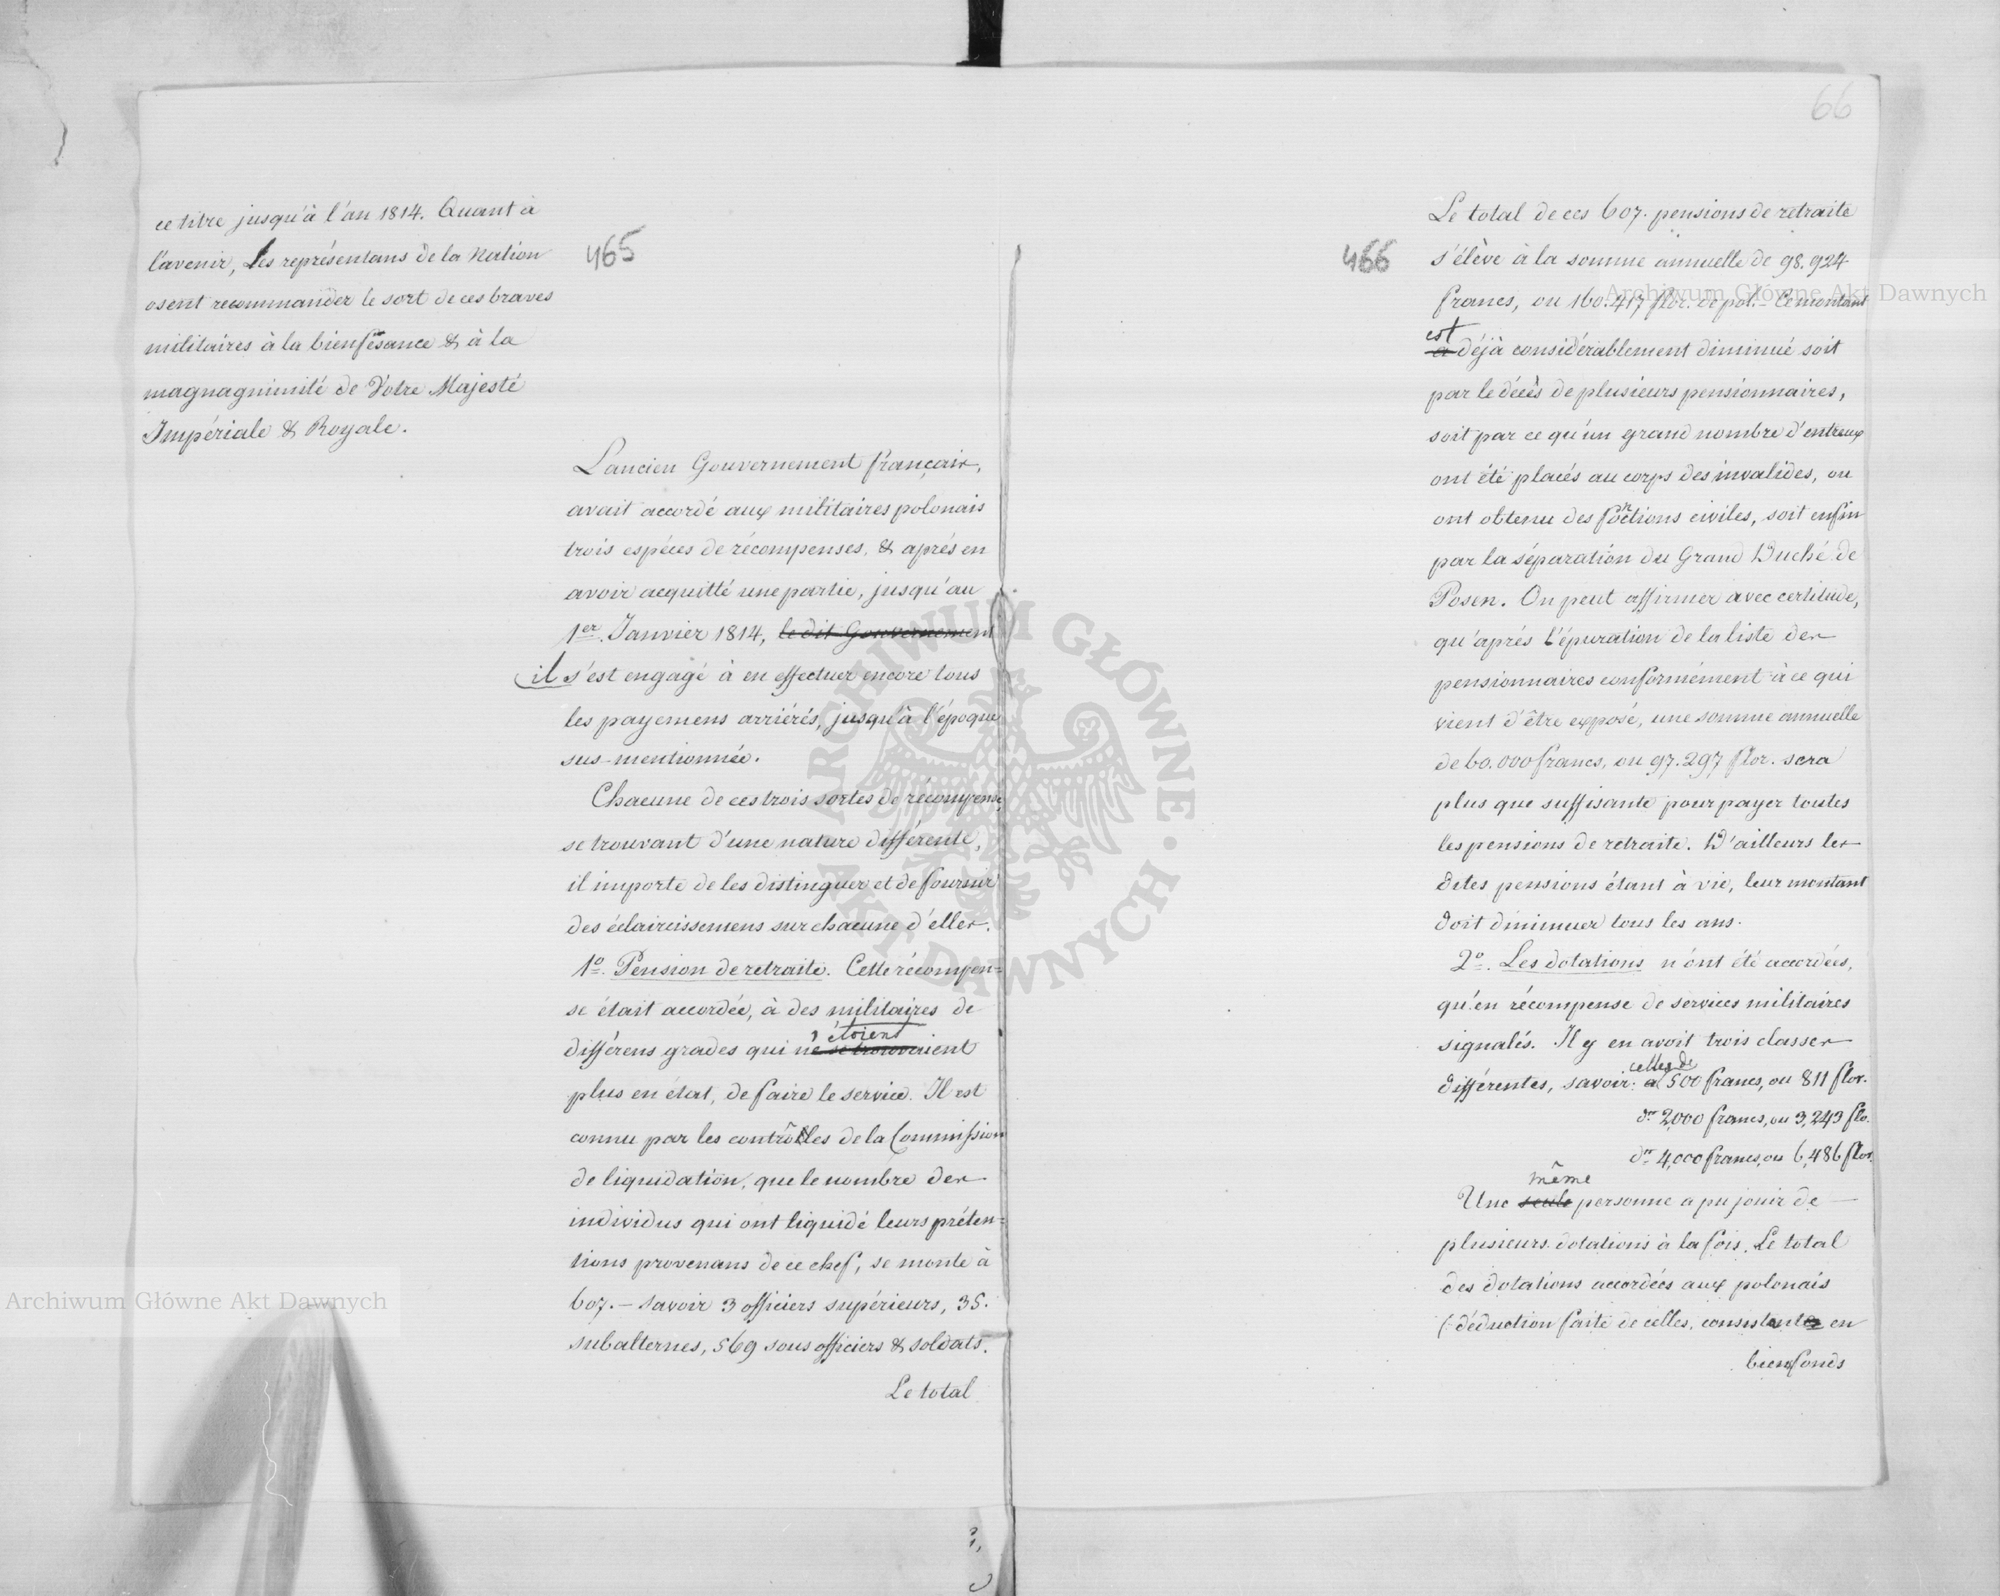 66
465
ce titre jusqu'à l'an 1814. Quant à
l'avenir, Les représentans de la Nation
osent recommander le sort de ces braves
militaires à la bienfésance & à la
magnagnimité de Votre Majesté
Impériale & Royale.
L'ancien Gouvernement français,
avait accordé aux militaires polonais
trois espéces de récompenses, & aprés en
avoir acquitté une partie, jusqu'au
1er. Janvier 1814, le dit Gouvernement
il s'est engagé à en effectuer encore tous
les payemens arriérés, jusqu'à l'époque
sus-mentionnée.
Chacune de ces trois sortes de récompense,
se trouvant d'une nature différente,
il importe de les distinguer et de fournir
des éclaircissemens sur chacune d'elles.
1o. Pension de retraite. Cette récompen=
se était accordée, à des militaires de
étoient
différens grades qui ne se trouvaient
plus en état, de faire le service. Il est
connu par les contrôlles de la Commission
de liquidation, que le nombre des
individus qui ont liquidé leurs préten=
tions provenans de ce chef, se monte à
607. — savoir 3 officiers supérieurs, 35.
subalternes, 569 sous officiers & soldats.
Le total
466
Le total de ces 607. pensions de retraite
s'élève à la somme annuelle de 98.924
francs, ou 160.417 flor. de pol. – Ce montant
est
a déjà considérablement diminué soit
par le décès de plusieurs pensionnaires,
soit par ce qu'un grand nombre d'entreux
ont été placés au corps des invalides, ou
ont obtenu des fonctions civiles, soit enfin
par la séparation du Grand Duché de
Posen. On peut affirmer avec certitude,
qu'aprés l'épuration de la liste des
pensionnaires conformément à ce qui
vient d'être exposé, une somme annuelle
de 60.000 francs, ou 97.297 flor. sera
plus que suffisante pour payer toutes
les pensions de retraite. D'ailleurs les
dites pensions étant à vie, leur montant
doit diminuer tous les ans.
2o. Les dotations n'ont été accordées,
qu'en récompense de services militaires
signalés. Il y en avoit trois classes
celles de
différentes, savoir: a 500 francs, ou 811 flor.
do 2,000 francs, ou 3,243 flo.
do 4,000 francs, ou 6,486 flor.
même
Une seule personne a pu jouir de —
plusieurs dotations à la fois. Le total
des dotations accordées aux polonais
(déduction faite de celles, consistantes en
bienfonds
Archiwum Główne Akt Dawnych
ARCHIWUM GŁÓWNE AKT DAWNYCH
Archiwum Główne Akt Dawnych